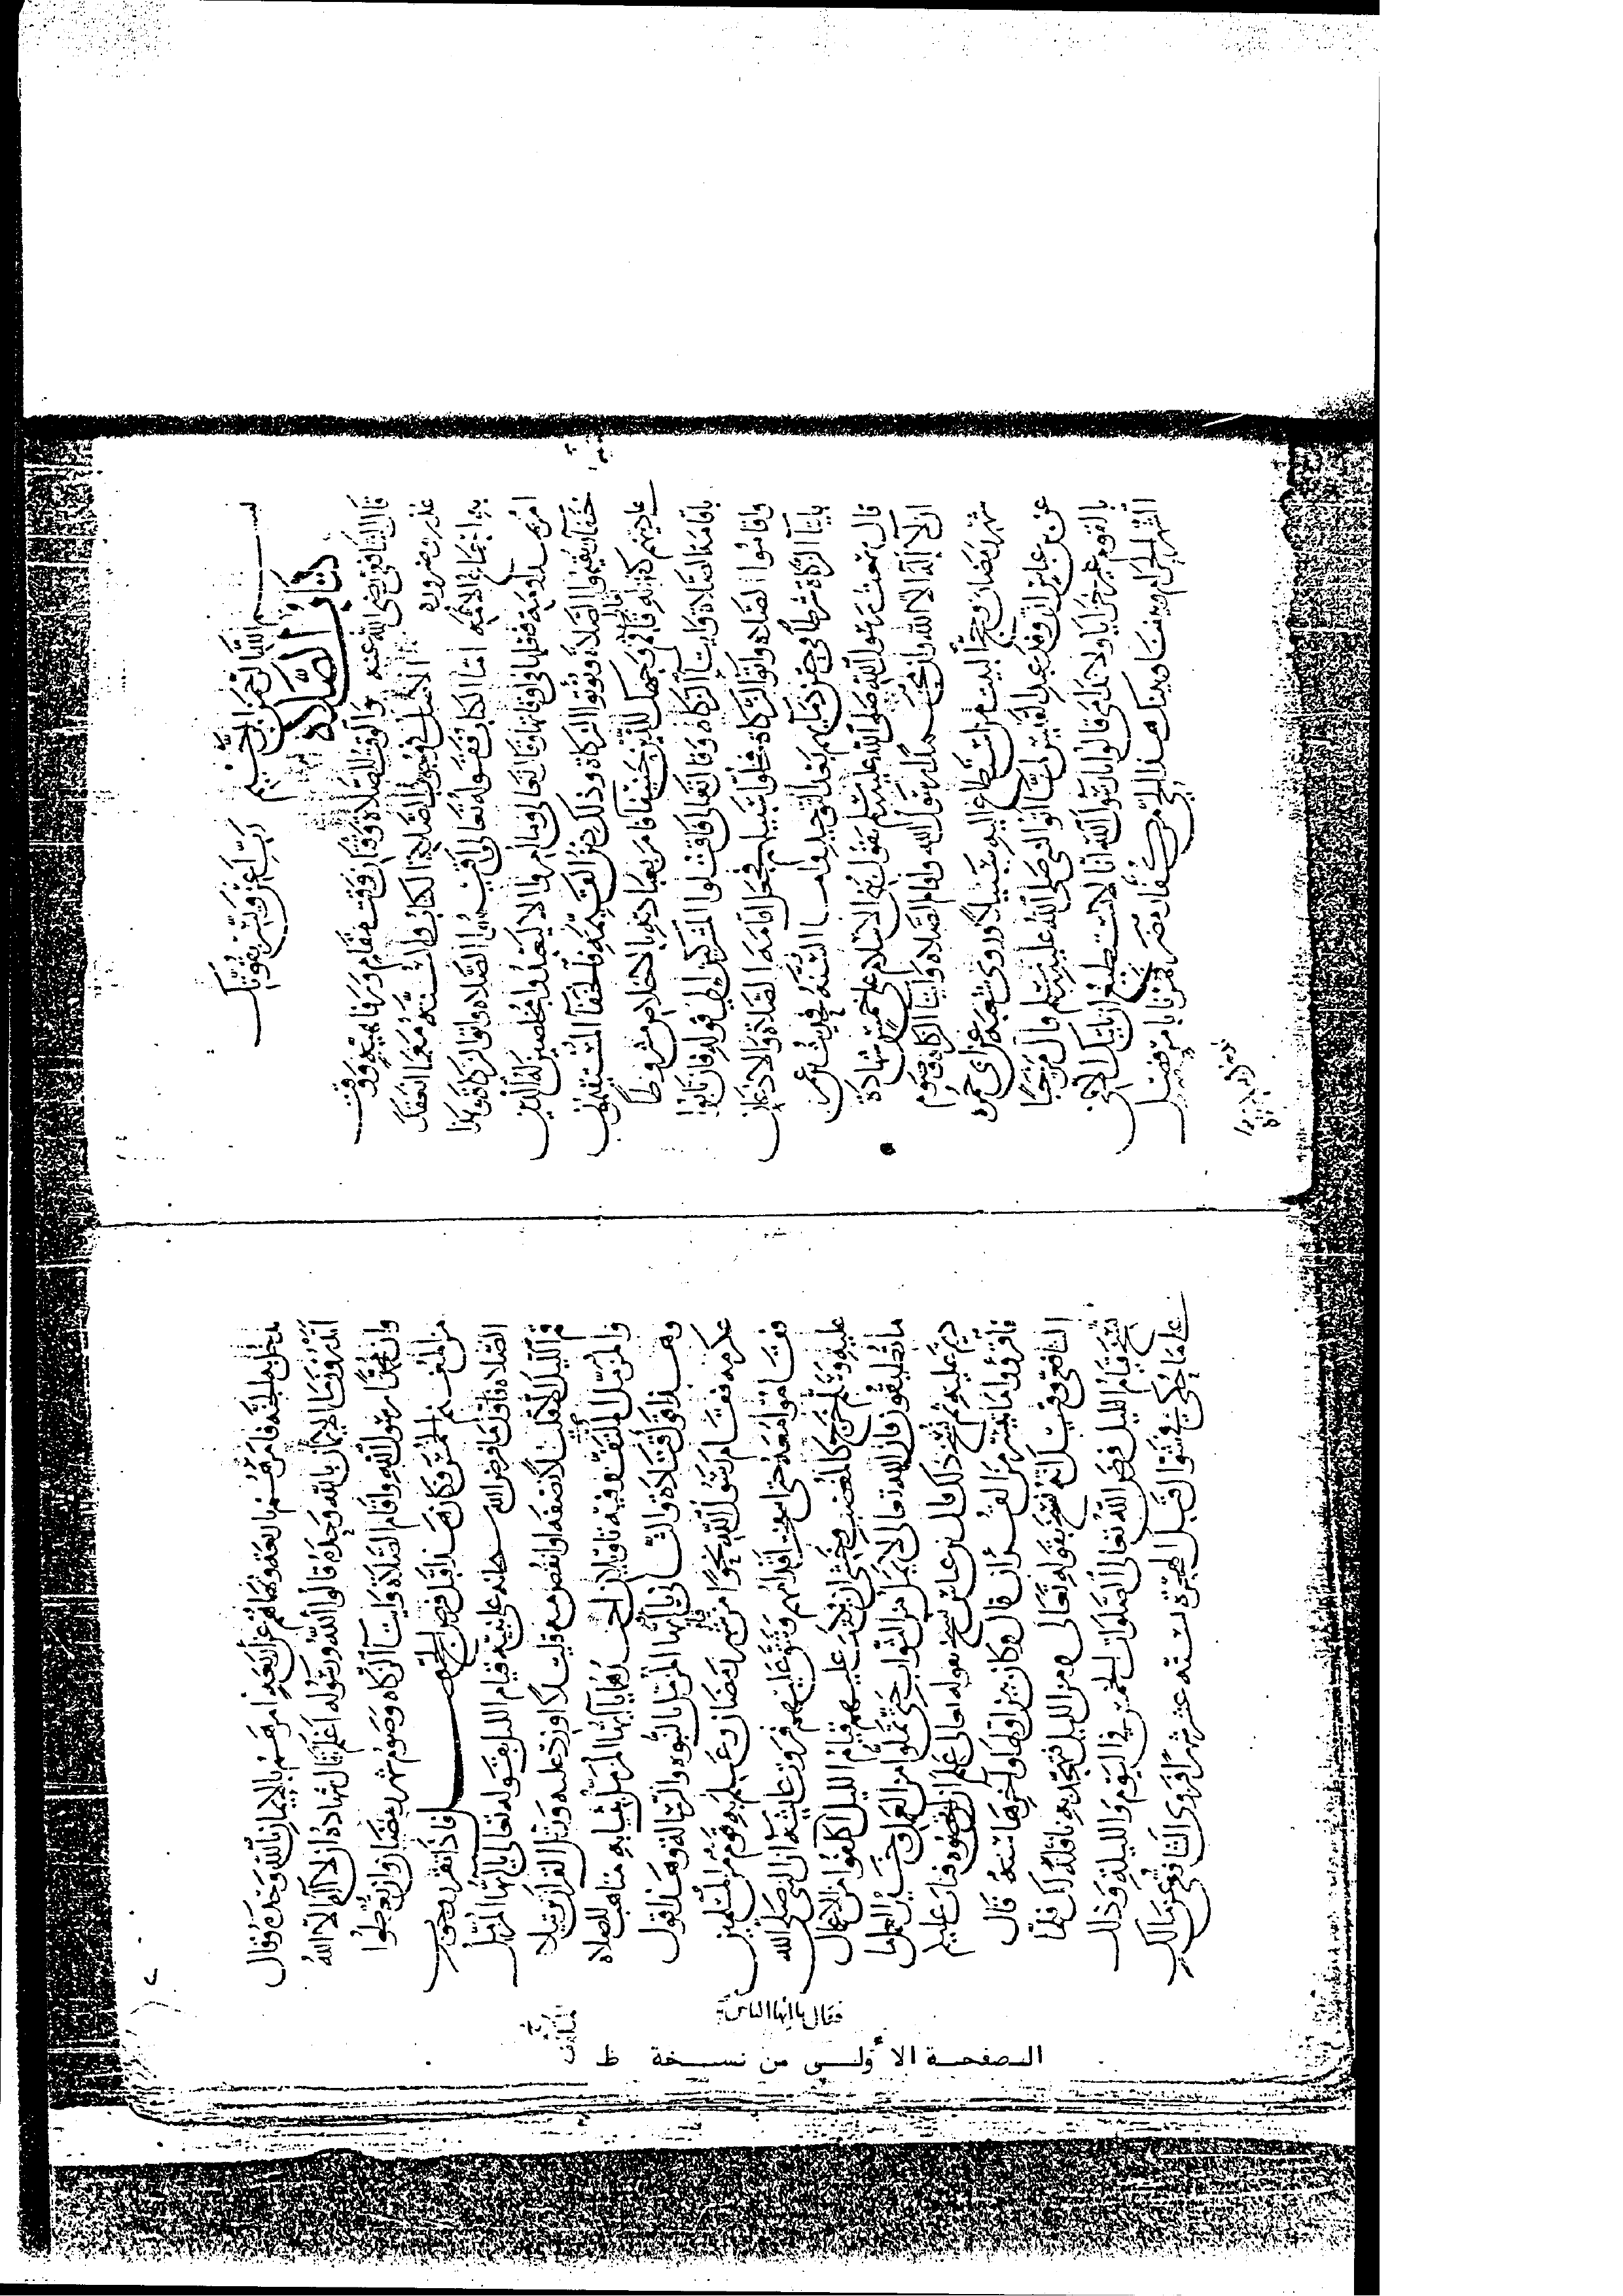 بسم الله الرحمن الرحيم رب اعن ويسر بقوتك
كتاب الصلاة
قال الشافعي رضي الله عنه والوقت للصلاة وقتان وقت مقام ورفاهية ووقت
عذر وضرورة الاصل في وجوب الصلاة الكتاب والسنة مع ما انعقد
به اجماع الامة اما الكتاب فقوله تعالى اقيموا الصلاة واتوا الزكاة فهذا
امر بمداومة فعلها في اوقاتها وقال تعالى وما امروا الا ليعبدوا الله مخلصين له الدين
حنفاء ويقيموا الصلاة ويؤتوا الزكاة وذلك دين القيمة والحنفاء المستقيمون
باقامة الصلاة وايتاء الزكاة وقال تعالى فاقتلوا المشركين الى قوله فان تابوا
واقاموا الصلاة واتوا الزكاة فخلوا سبيلهم فجعل اقامة الصلاة والاذعان
بايتاء الزكاة شرطا في حقن دمايهم بعد التوحيد واما السنة فحديث ابن عمر
قال سمعت رسول الله صلى الله عليه وسلم يقول بني الاسلام على خمس شهادة
ان لا اله الا الله وان محمدا رسول الله واقام الصلاة وايتاء الزكاة وصوم
شهر رمضان وحج البيت من استطاع اليه سبيلا وروى شعبة عن ابي جمرة
عن ابن عباس ان وفد عبد القيس لما اتوا النبي صلى الله عليه وسلم قال مرحبا
بالقوم غير خزايا ولا ندامى قالوا يا رسول الله انا لا نستطيع ان ناتيك الا في
الشهر الحرام وبيننا وبينك هذا الحي من كفار مضر فمرنا بامر فصل
ندخل به الجنة فامرهم باربع ونهاهم عن اربع امرهم بالايمان بالله وحده وقال
اتدرون ما الايمان بالله وحده قالوا الله ورسوله اعلم قال شهادة ان لا اله الا الله
وان محمدا رسول الله واقام الصلاة وايتاء الزكاة وصوم شهر رمضان وان يعطوا
من المغنم الخمس وكان هذا قبل فرض الحج فصل فاذا تقرر وجوب
الصلاة فاول ما فرض الله سبحانه على نبيه قيام الليل بقوله تعالى يا ايها المزمل
قم الليل الا قليلا نصفه او انقص منه قليلا او زد عليه ورتل القران ترتيلا
والمزمل الملتف وفيه تاويلان احدهما يا ايها المزمل بثيابه متاهب للصلاة
وهذا قول قتادة والثاني يا ايها المزمل بالنبوة والرسالة وهذا قول
عكرمة فقام رسول الله نحوا من شهر رمضان وعلم به قوم من المسلمين
فقاموا معه حتى انتفخت اقدامهم وشق عليهم فروت عائشة ان النبي صلى الله
عليه وسلم خرج كالمغضب وخشي ان يكتب عليهم قيام الليل اكلفوا من الاعمال
ما تطيقون فان الله تعالى لا يمل من الثواب حتى تملوا من العمل
قال
فاقرءوا ما تيسر من القران قال وكان بين اولها واخرها سنة قال
الشافعي وقيل انه نسخ بقوله تعالى ومن الليل فتهجد به نافلة لك فلما
نسخ قيام الليل فرض الله تعالى الصلوات الخمس في اليوم والليلة وذلك
على ما حكي في شوال قبل الهجرة بستة عشر شهرا فروى الشافعي عن مالك
فقال يا ايها الناس
الصفحة الأولى من نسخة ظ